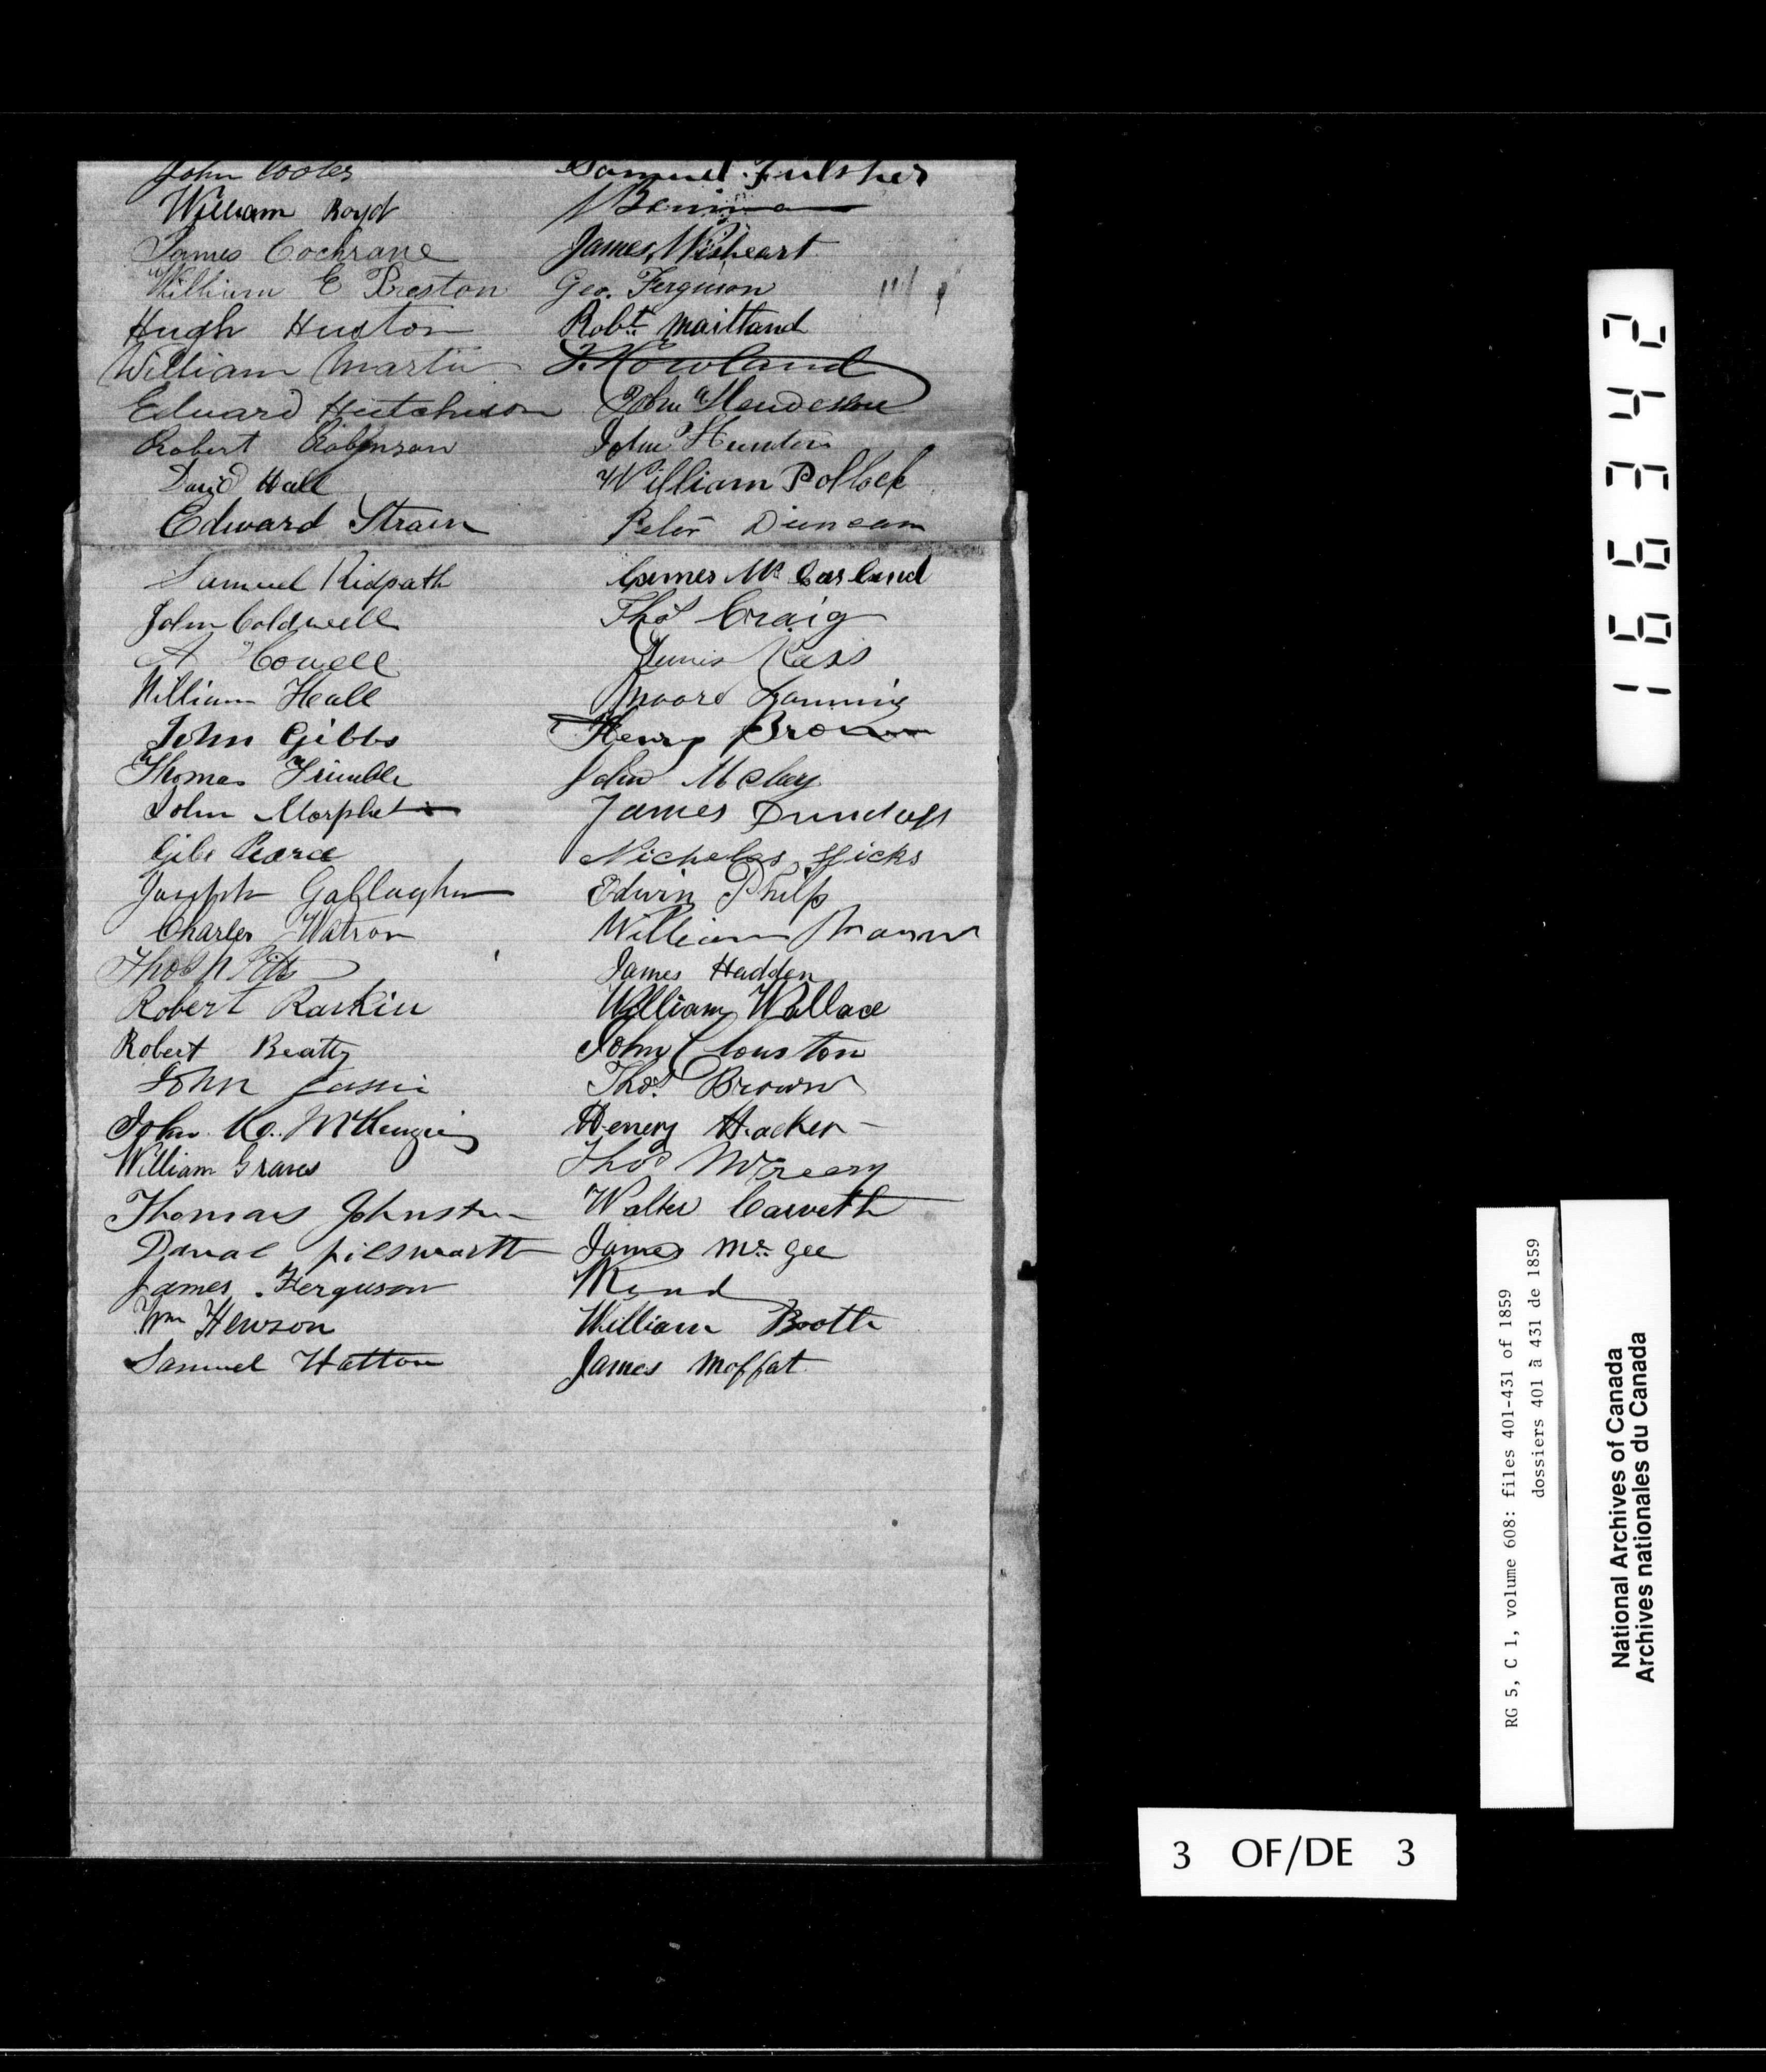 John Samuel Fulsher
William Boyd
James Cochrane James Wisheart
William E Preston Geo. Ferguson
Hugh Huston Robt. Maitland
William Martin Howland
Edward Hutchison John Henderson
Robert Robinson John Hunter
David Hall William Pollock
Edward Strain Peter Duncan
Samuel Ridpath James Mc Casland
John Coldwell Thos Craig
A Howell
William Heall Moore
John Gibbs Henry Brown
Thomas Trimble John
John Morphet James
Pearce Nicholas Hicks
Joseph Gallagher Edwin Philp
Charles Watson William Mason
Thos Pitts James Hadden
Robert Raskin William Wallace
Robert Beatty John Clouston
John Thos. Brown
John McKenzie Henry Hacker
William Graves Thos McCreery
Thomas Johnston Walter Carveth
pilsworth James Mc. Gee
James Ferguson
Wm Hewson William Booth
Samuel Hatton James Moffat
166342
RG 5, C 1, volume 608: files 401-431 of 1859
dossiers 401 à 431 de 1859
National Archives of Canada
Archives nationales du Canada
3 OF/DE 3